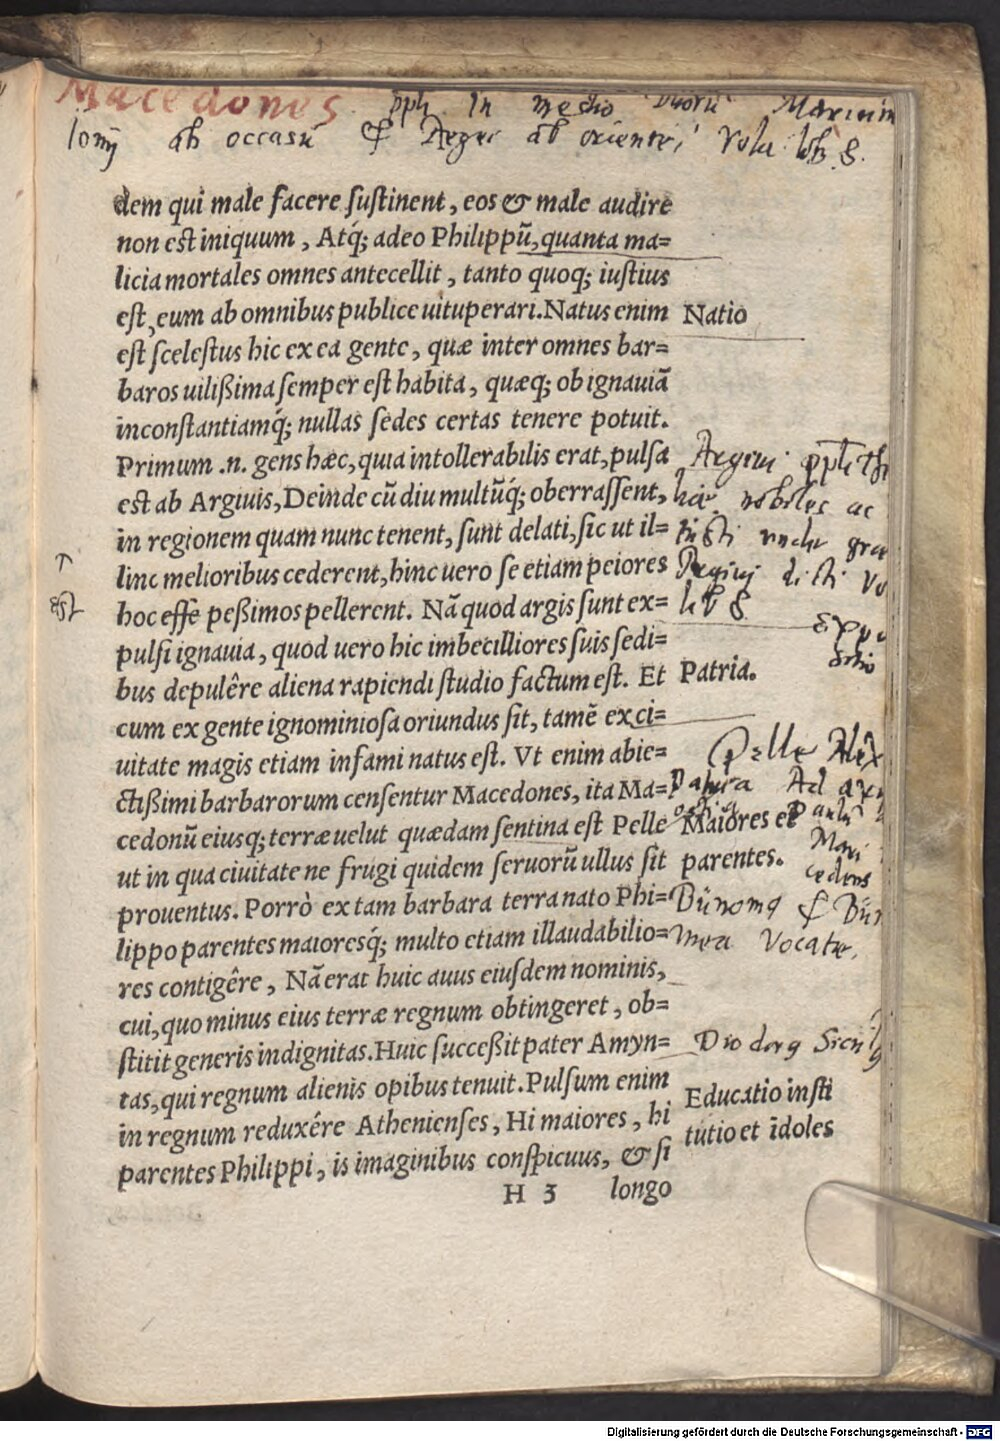 Macedones ppli in medio duorū Marium
Ionij ab occasū & Aegei ab oriente, Vola lib 8.
dem qui male facere ſuſtinent, eos & male audire
non eſt iniquum, Atq́; adeo Philippū, quanta ma=
licia mortales omnes antecellit, tanto quoq; iuſtius
eſt, eum ab omnibus publice uituperari. Natus enim
Natio
eſt ſceleſtus hic ex ea gente, quæ inter omnes bar=
baros uilißima ſemper eſt habita, quæq; ob ignauiā
inconſtantiamq́; nullas ſedes certas tenere potuit.
Primum .n. gens hæc, quia intollerabilis erat, pulſa
eſt ab Argiuis, Deinde cū diu multūq́; oberraſſent,
in regionem quam nunc tenent, ſunt delati, ſic ut il=
linc melioribus cederent, hinc uero ſe etiam peiores
hoc eſſe peßimos pellerent. Nā quod argis ſunt ex=
est
pulſi ignauia, quod uero hic imbecilliores ſuis ſedi=
bus depulêre aliena rapiendi ſtudio factum eſt. Et
Patria.
cum ex gente ignominioſa oriundus ſit, tamē ex ci=
uitate magis etiam infami natus eſt. Vt enim abie=
Pelle Alex
ctißimi barbarorum cenſentur Macedones, ita Ma=
cedonū eiusq; terræ uelut quædam ſentina eſt Pelle
Maiores et
ut in qua ciuitate ne frugi quidem ſeruorū ullus ſit
parentes.
prouentus. Porrò ex tam barbara terra nato Phi=
lippo parentes maioresq́; multo etiam illaudabilio=
vocatæ.
res contigêre, Nā erat huic auus eiuſdem nominis,
cui, quo minus eius terræ regnum obtingeret, ob=
ſtitit generis indignitas. Huic ſucceßit pater Amyn=
Diodorꝰ Sicul
tas, qui regnum alienis opibus tenuit. Pulſum enim
Educatio inſti
in regnum reduxére Athenienſes, Hi maiores, hi
tutio et īdoles
parentes Philippi, is imaginibus conſpicuus, & ſi
H 3 longo
Digitalisierung gefördert durch die Deutsche Forschungsgemeinschaft - DFG